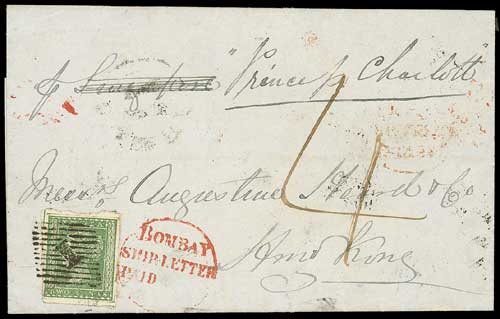 p "Princess Charlott"
4
Messrs Augustine Heard & Co
Hong Kong
BOMBAY
SHIP LETTER
PAID